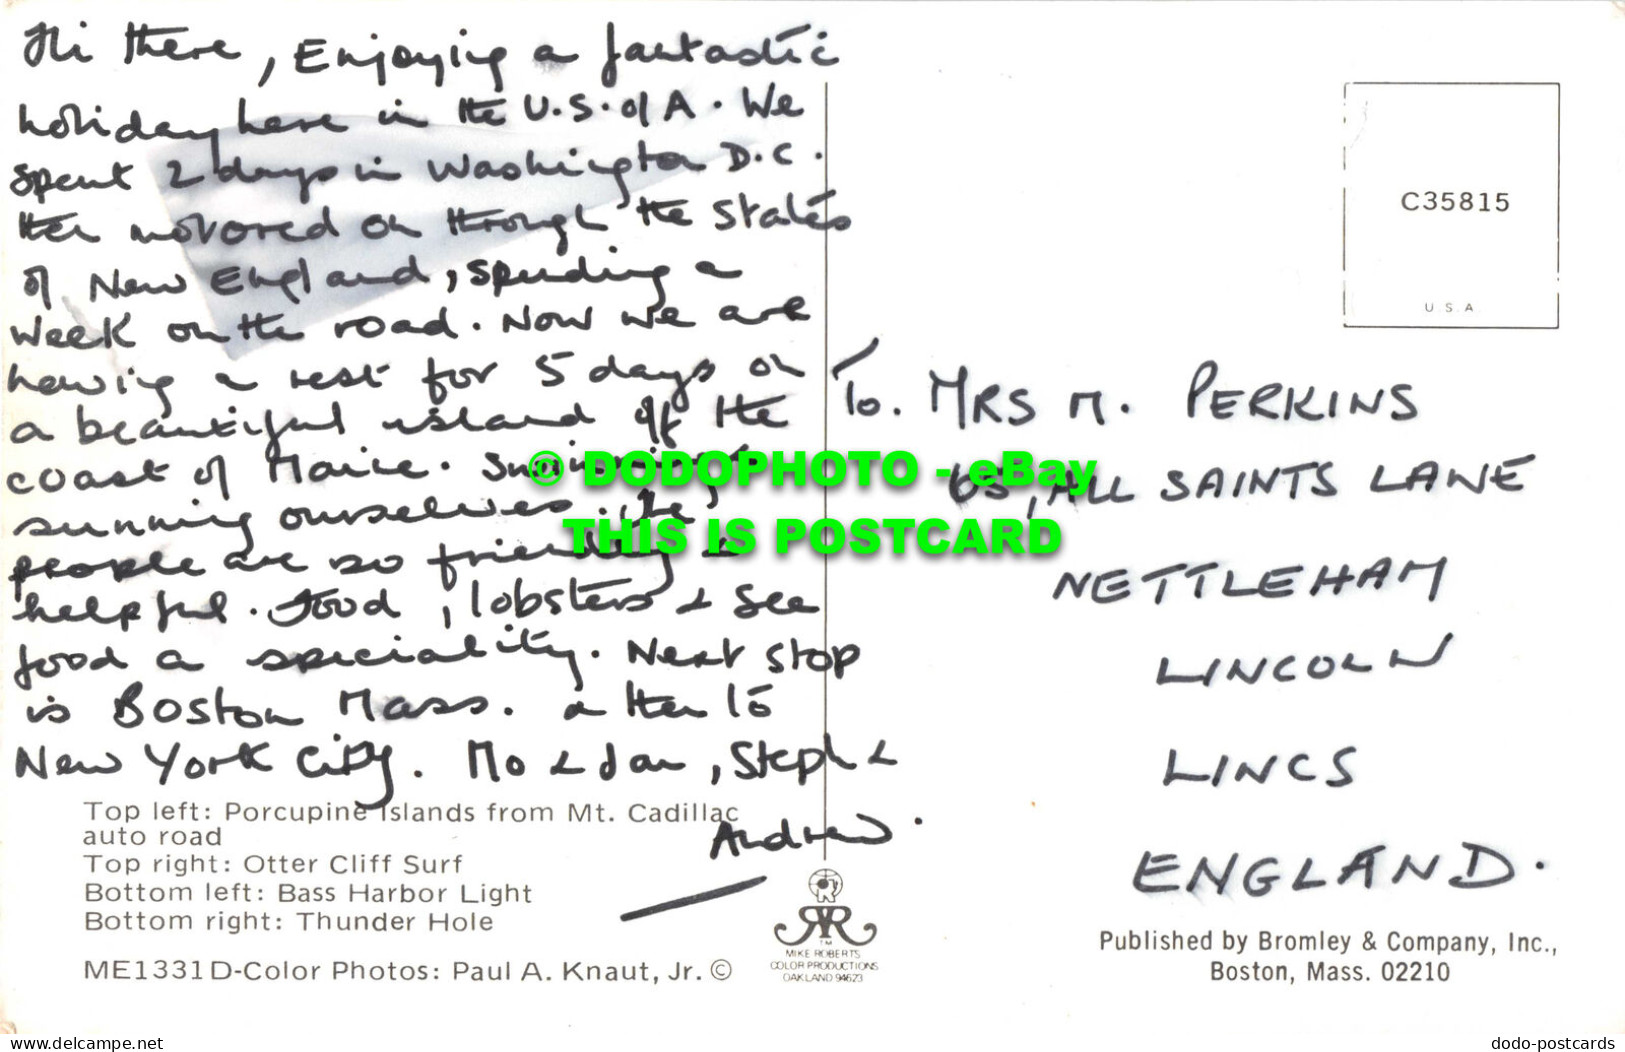 Hi there, Enjoying a fantastic
holiday here in the U.S. of A. We
spent 2 days in Washington D.C.
then motored on through the States
of New England, spending a
week on the road. Now we are
having a rest for 5 days on
a beautiful island off the
coast of Maine. Swimming &
sunning ourselves. The
people are so friendly &
helpful. Food, lobsters & see
food a speciality. Next stop
is Boston Mass. & then to
New York City. Mo & Ian, Steph &
Andrew.
To. MRS M. PERKINS
65, ALL SAINTS LANE
NETTLEHAM
LINCOLN
LINCS
ENGLAND.
C35815
U.S.A.
© DODOPHOTO - eBay
THIS IS POSTCARD
Top left: Porcupine Islands from Mt. Cadillac
auto road
Top right: Otter Cliff Surf
Bottom left: Bass Harbor Light
Bottom right: Thunder Hole
ME1331D-Color Photos: Paul A. Knaut, Jr. ©
TM
MIKE ROBERTS
COLOR PRODUCTIONS
OAKLAND 94623
Published by Bromley & Company, Inc.,
Boston, Mass. 02210
www.delcampe.net
dodo-postcards